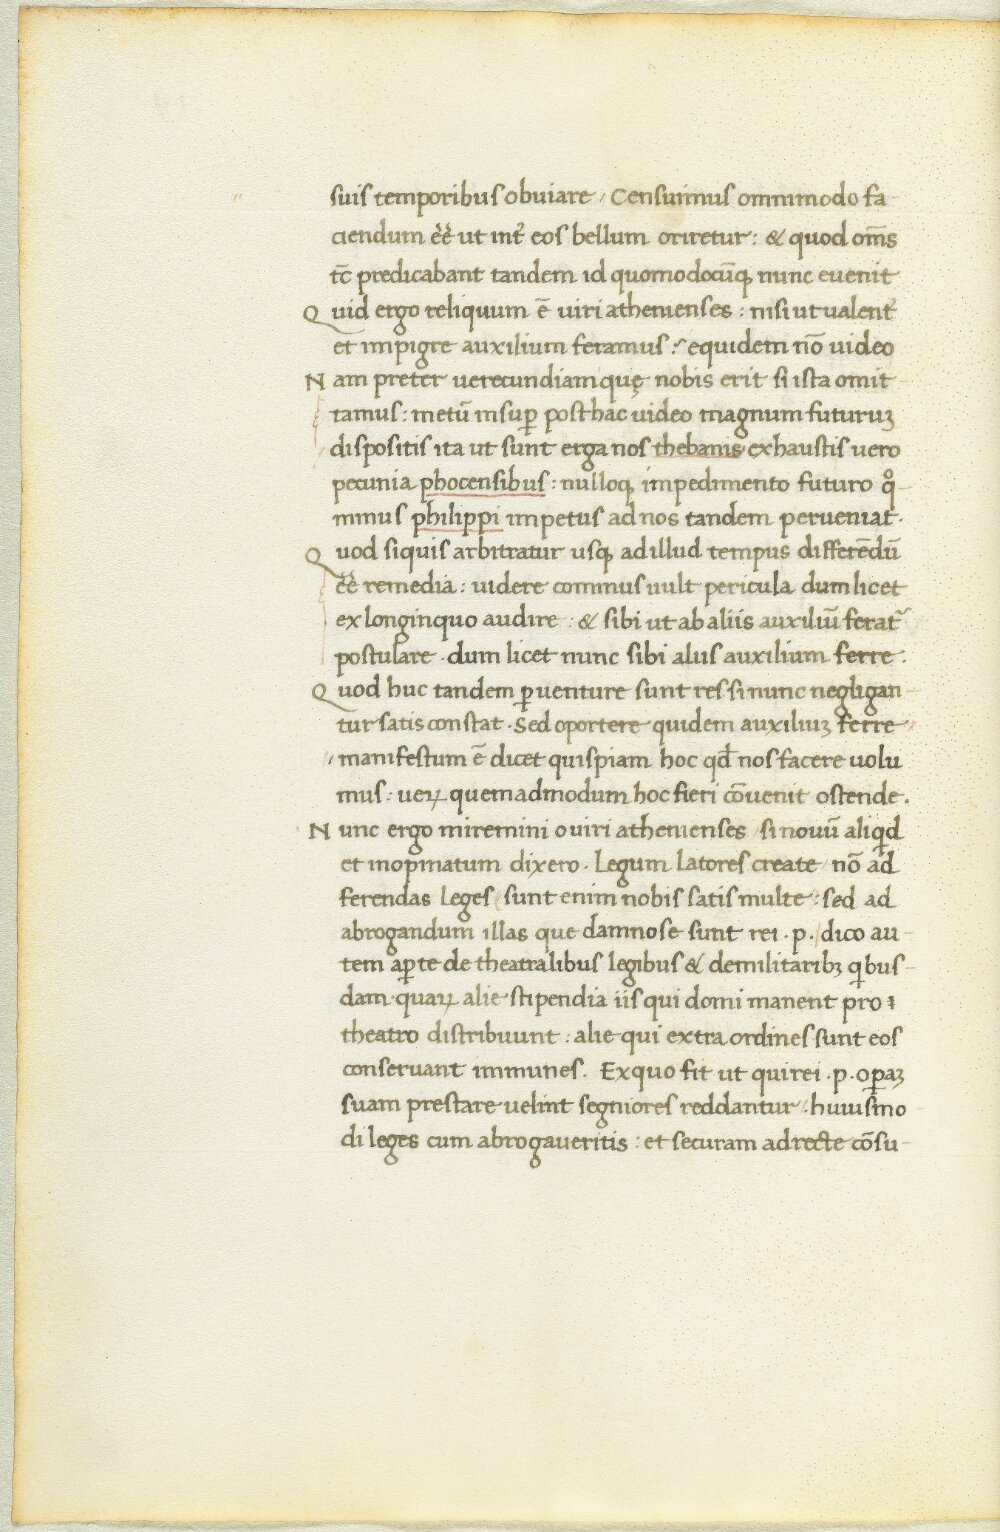 suis temporibus obuiare / Censuimus ommimodo fa-
ciendum eē ut int̄ eos bellum oriretur: & quod om̄s
tc̄ predicabant tandem id quomodocūq; nunc euenit
Quid ergo reliquum ē uiri athenienses: nisi ut ualent̄
et impigre auxilium feramus: equidem nō uideo
Nam preter uerecundiam quę nobis erit si ista omit-
tamus: metū insuꝑ posthac uideo magnum futuruꝫ
dispositis ita ut sunt erga nos thebanis exhaustis uero
pecunia phocensibus: nulloq; impedimento futuro qͦ-
minus philippi impetus ad nos tandem perueniat.
Quod siquis arbitratur usq; ad illud tempus differēdū
eē remedia: uidere comminus uult pericula dum licet
ex longinquo audire: & sibi ut ab aliis auxiliū ferat᷑
postulare. dum licet nunc sibi aliis auxilium ferre.
Quod huc tandem ꝑuenture sunt res si nunc negligan-
tur satis constat. Sed oportere quidem auxiliuꝫ ferre
manifestum ē dicet quispiam hoc qd̄ nos facere uolu
mus: ueꝝ quemadmodum hoc fieri cōuenit ostende.
Nunc ergo miremini o uiri athenienses / si nouū aliq̄d
et inopinatum dixero. Legum latores create / nō ad
ferendas leges / sunt enim nobis satis multe: sed ad
abrogandum illas que damnose sunt rei.p. / dico au-
tem aꝑte de theatralibus legibus & de militaribꝫ q̄bus-
dam. quaꝝ alie stipendia iis qui domi manent pro
theatro distribuunt: alie qui extra ordines sunt eos
conseruant immunes. Ex quo fit ut qui rei.p. oꝑaꝫ
suam prestare uelint segniores reddantur / huiusmo
di leges cum abrogaueritis: et securam ad recte cōsu-